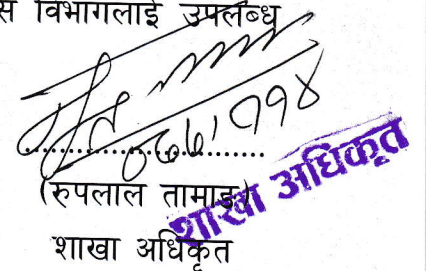 स विभागलाई उपलब्ध
(रुपलाल तामाङ)
शाखा अधिकृत
शाखा अधिकृत